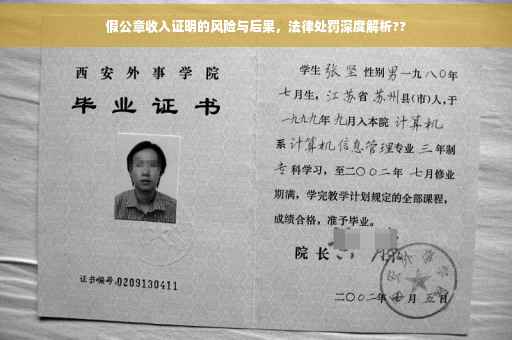 假公章收入证明的风险与后果，法律处罚深度解析??
西安外事学院
毕业证书
证书编号:0209130411
学生 张坚 性别 男 一九八〇年
七月生，江苏省 苏州县(市)人,于
一九九九年 九月入本院 计算机
系 计算机信息管理 专业 三 年制
专 科学习，至二〇〇二年 七月修业
期满，学完教学计划规定的全部课程，
成绩合格，准予毕业。
院长
二〇〇二年 月 五日